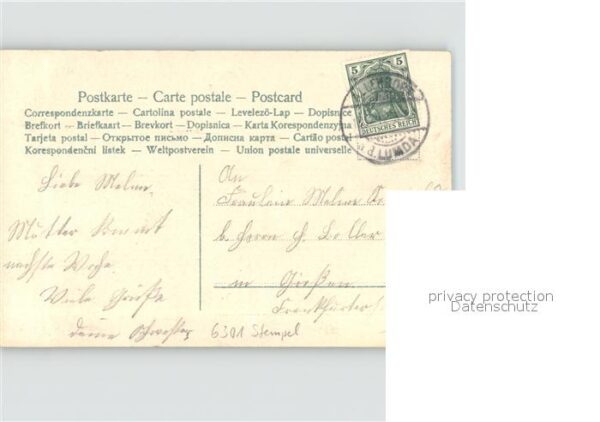 Postkarte — Carte postale — Postcard
Correspondenzkarte — Cartolina postale — Levelező-Lap — Dopisnice
Brefkort — Briefkaart — Brevkort — Dopisnica — Karta Korespondenzyjna
Tarjeta postal — Открытое письмо — Дописна карта — Cartão postal
Korespondenční listek — Weltpostverein — Union postale universelle
5 5
DEUTSCHES REICH
LUMDA
Liebe Meline.
Mutter kommt
nächste Woche.
Viele Grüße
deine Schwester
An
Fräulein Meline
b. Herrn H.
in Gießen
Frankfurter
6301 Stempel
privacy protection
Datenschutz